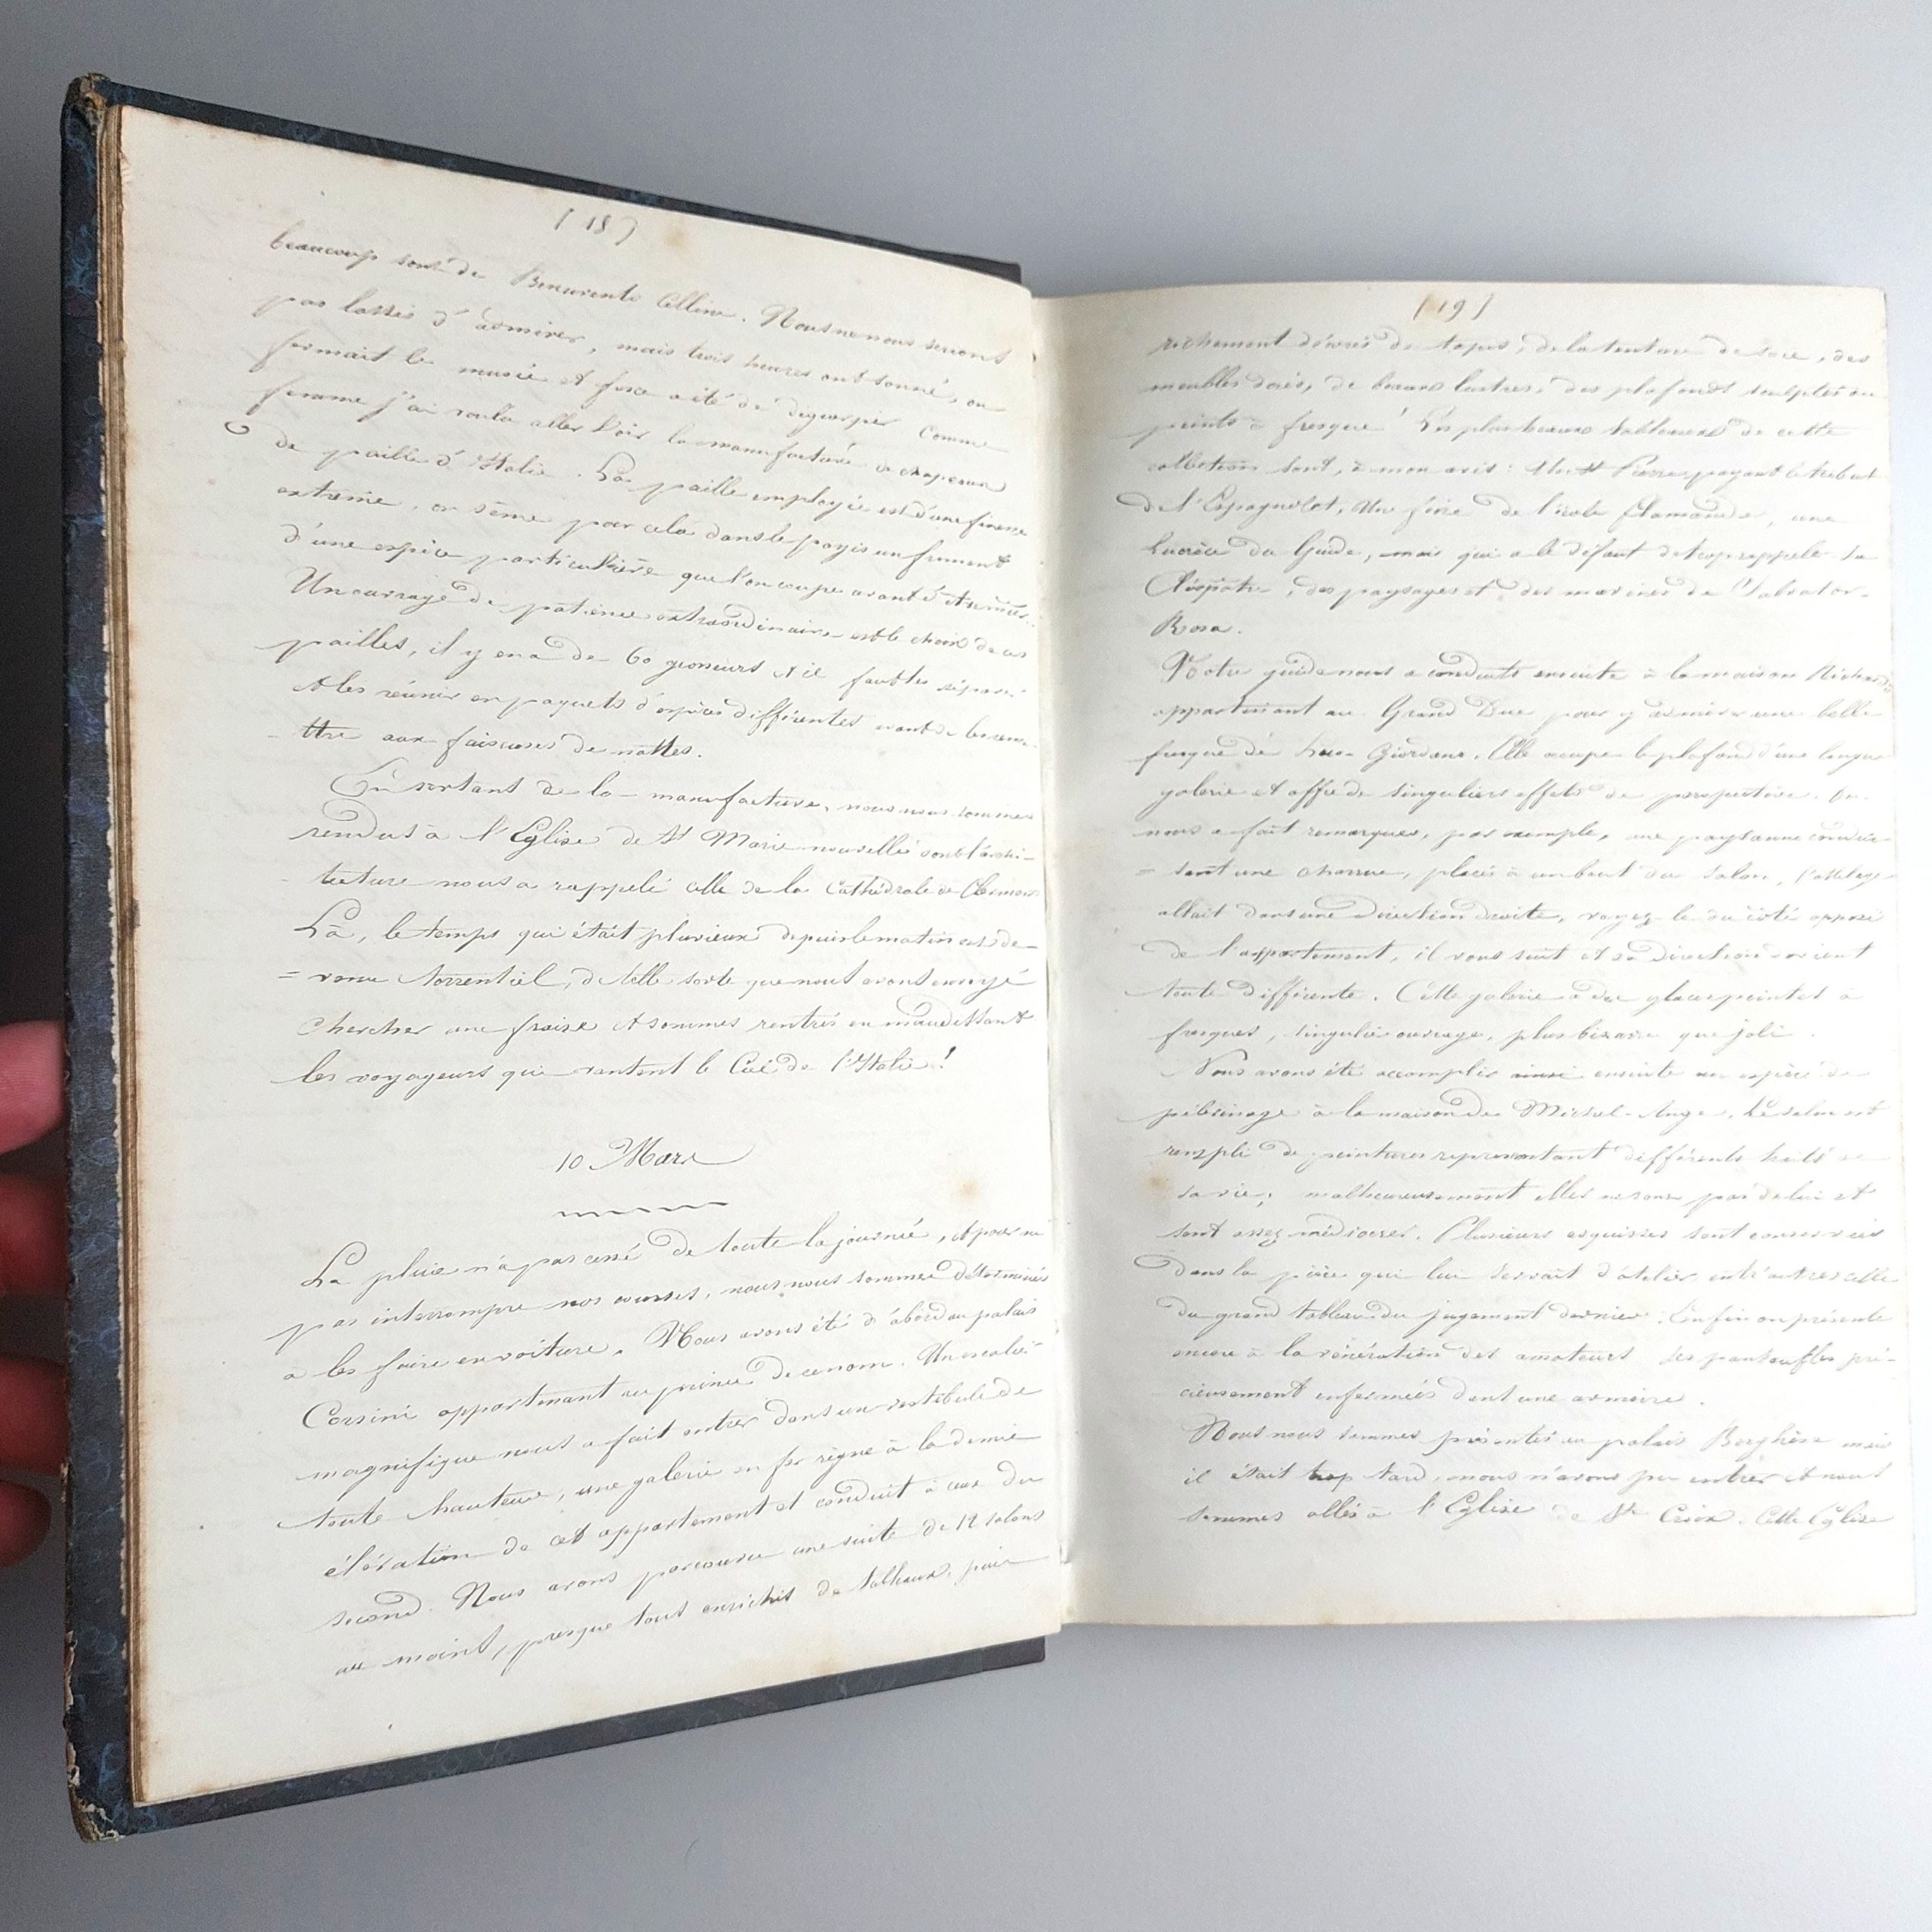 (18)
beaucoup sont de Benvenuto Cellini. Nous ne nous serions
pas lassés d'admirer, mais trois heures ont sonné, on
fermait le musée et force a été de déguerpir Comme
femme j'ai voulu aller voir la manufacture de chapeaux
de paille d'Italie. La paille employée est d'une finesse
extrême, on sème pour cela dans le pays un froment
d'une espèce particulière que l'on coupe avant
Un ouvrage de patience extraordinaire est le choix de ces
pailles, il y en a de 60 grosseurs et il faut les séparer
et les réunir en paquets d'espèces différentes avant de les remet-
ttre aux faiseuses de nattes.
En sortant de la manufacture, nous nous sommes
rendus à l'Eglise de St Marie nouvelle dont l'archi-
tecture nous a rappelé celle de la Cathédrale de Clermont
Là, le temps qui était pluvieux depuis le matin est de-
= venu torrentiel, de telle sorte que nous avons envoyé
chercher une et sommes rentrés en maudissant
les voyageurs qui vantent le Ciel de l'Italie!
10 Mars
La pluie n'a pas cessé de toute la journée, et pour ne
pas interrompre nos courses, nous nous sommes déterminés
à les faire en voiture. Nous avons été d'abord au palais
Corsini appartenant au prince de ce nom. Un escalier
magnifique nous a fait entrer dans un vestibule de
toute hauteur, une galerie en fer règne à la demie
élévation de cet appartement et conduit à ceux du
second. Nous avons parcouru une suite de 12 salons
au moins, presque tous enrichis de tableaux, puis
(19)
richement décorés de tapis, de la tenture de soie, des
meubles dorés, de beaux lustres, des plafonds sculptés ou
peints à fresque! Les plus beaux tableaux de cette
collection sont, à mon avis: Un St Pierre payant le tribut
de l'Espagnolet, Une foire de l'école flamande, une
Lucrèce du Guide, mais qui a le défaut de trop rappeler sa
Cléopatre, des paysages et des marines de Salvator-
Rosa.
Notre guide nous a conduits ensuite à la maison
appartenant au Grand Duc pour y admirer une belle
fresque de Luca Giordano. Elle occupe le plafond d'une longue
galerie et offre de singuliers effets de perspective. On
nous a fait remarquer, par exemple, une paysanne condui-
= sant une charrue, placés à un bout du salon, l'attelage
allait dans une direction droite, voyez-le du côté opposé
de l'appartement, il vous suit et sa direction devient
toute différente. Cette galerie a des glaces peintes à
fresques, singulier ouvrage, plus bizarre que joli.
Nous avons été accomplir ainsi ensuite une espèce de
pélerinage à la maison de Michel-Ange. Le salon est
rempli de peintures représentant différents traits de
sa vie; malheureusement elles ne sont pas de lui et
sont assez médiocres. Plusieurs esquisses sont conservées
dans la pièce qui lui servait d'atelier entr'autres celle
du grand tableau du jugement dernier. Enfin on présente
encore à la vénération des amateurs ses pantoufles pré-
cieusement enfermées dans une armoire.
Nous nous sommes présentés au palais Borghèse mais
il était trop tard, nous n'avons pu entrer et nous
sommes allés à l'Eglise de Ste Croix. Cette Eglise